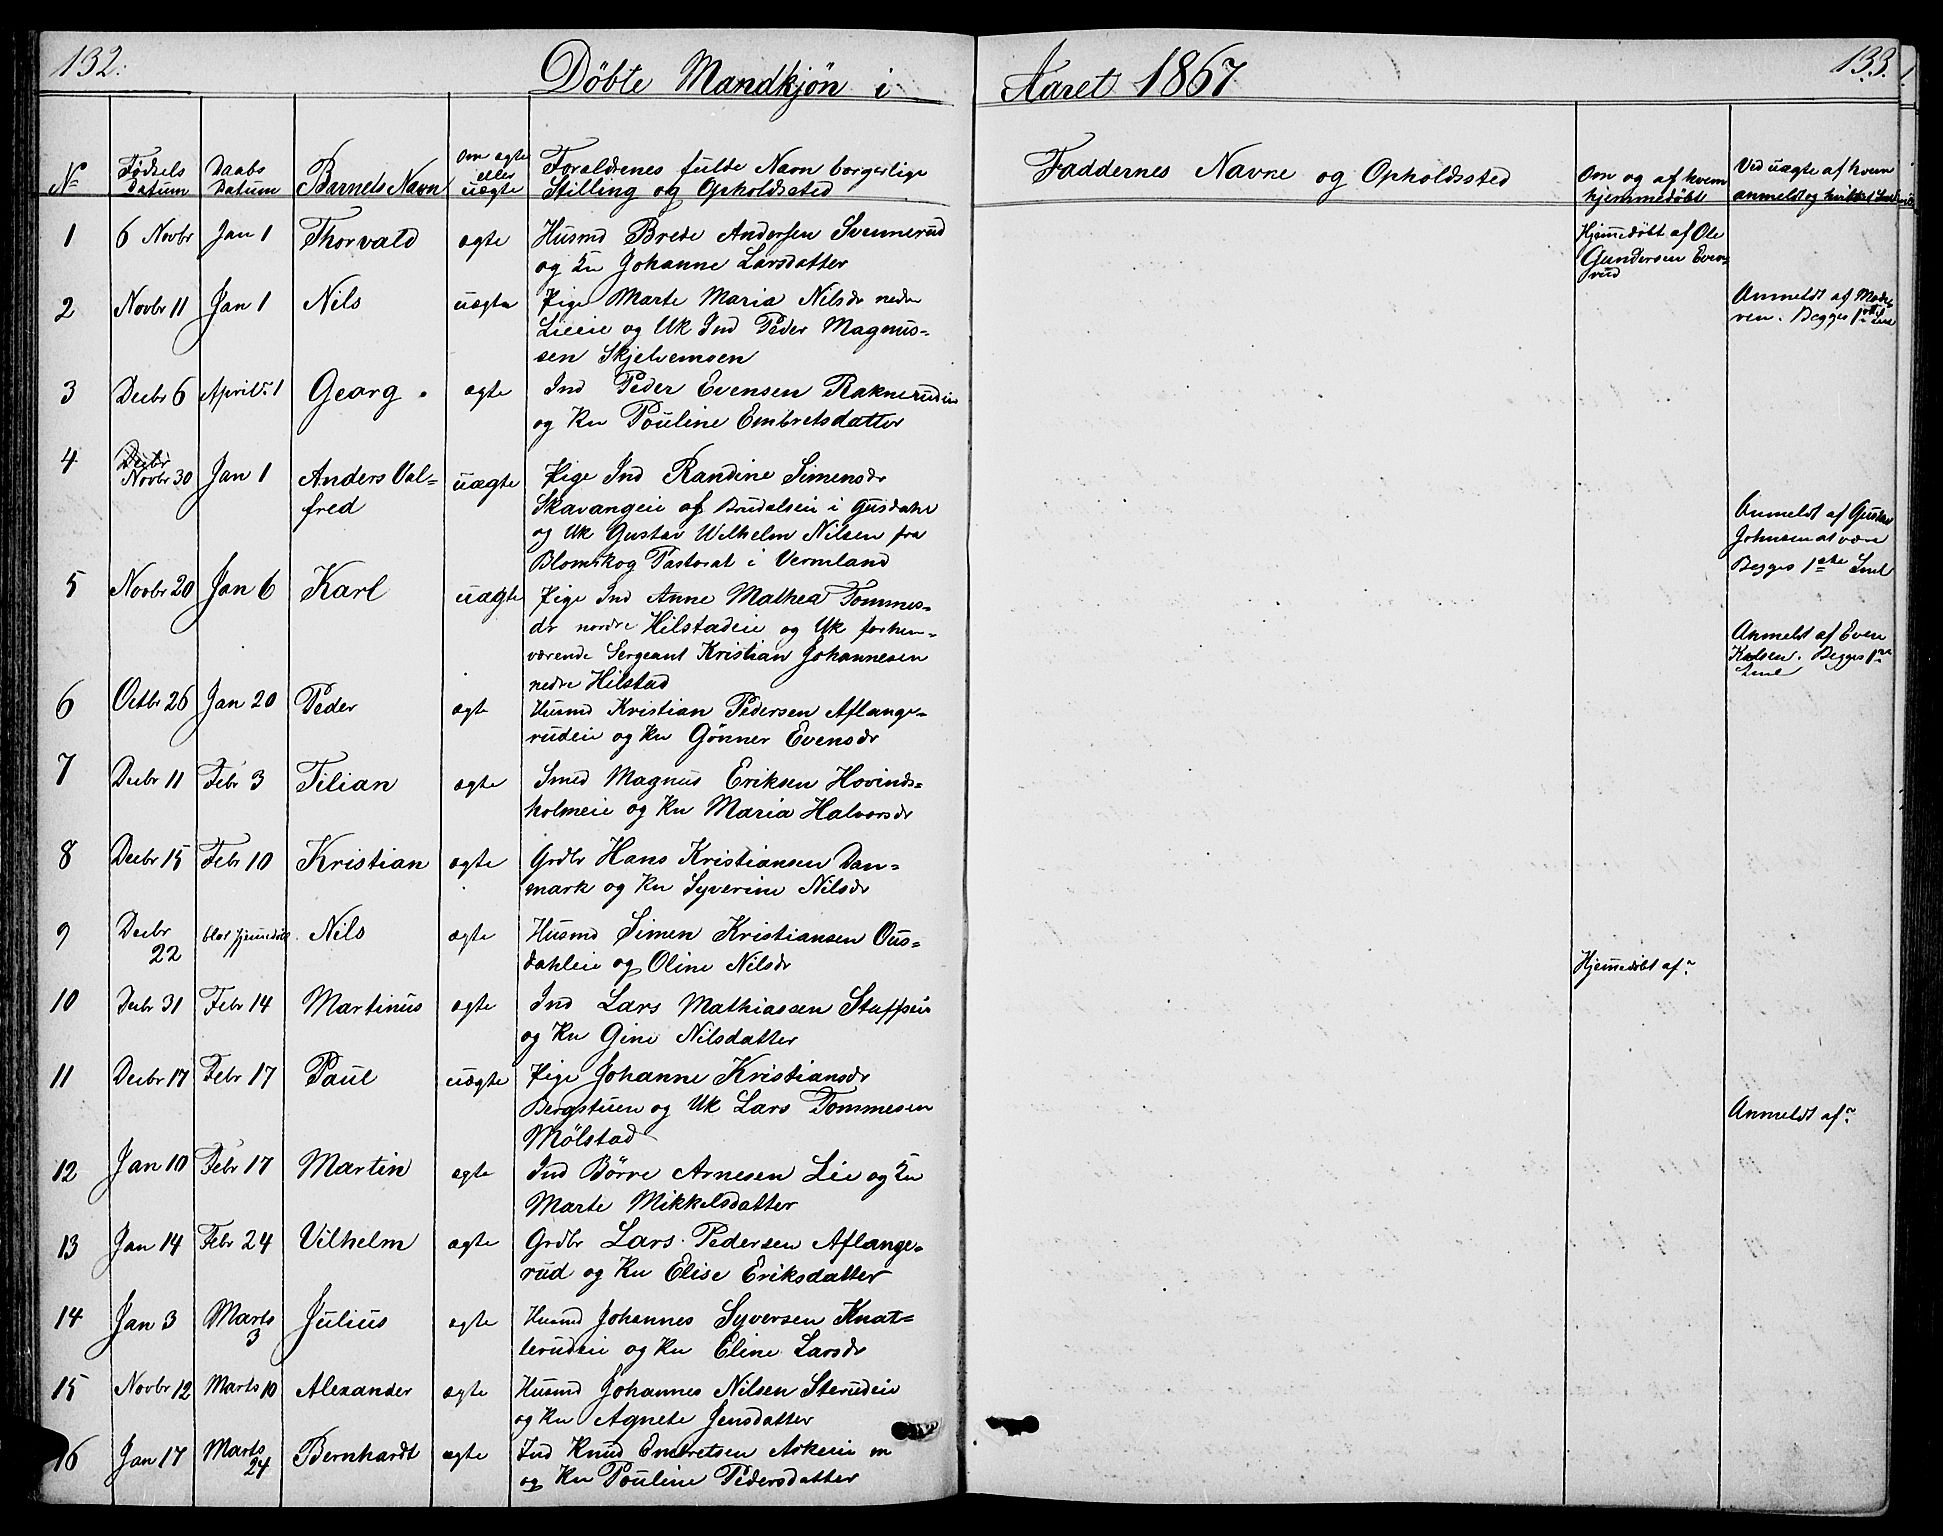 132.
Døbte Mandkjøn i
Aaret 1867
133.
No
Fødsels Datum
Daabs Datum
Barnets Navn
Om ægte eller uægte
Forældrenes fulde Navn borgerlige
Stilling og Opholdssted
Faddernes Navne og Opholdssted
Om og af hvem
hjemmedøbt
Ved uægte af hvem
anmeldt og hvilket
1 6 Novbr Jan 1 Thorvald ægte Husmd Brede Andersen Svennerud
og Ku Johanne Larsdatter
Hjemmedøbt af Ole
Gundersen Evens-
rud
2 Novbr 11 Jan 1 Nils uægte Pige Marte Maria Nilsdr nedre
Lieeie og Uk Ind Peder Magnus-
sen Skjelvemoen
Anmeldt af Mode-
ren. Begges 1ste
3 Decbr 6 April 1 Georg. ægte Ind Peder Evensen Raknerudeie
og Ku Pouline Embretsdatter
4 Decbr
Novbr 30 Jan 1 Anders Val-
fred uægte Pige Ind Randine Simensdr
Skavangeie af Brudalseie i
og Uk Gustav Wilhelm Nilsen fra
Blomskog Pastorat i Vermland
Anmeldt af Gustav
Johnsen at være
Begges 1ste
5 Novbr 20 Jan 6 Karl uægte Pige Ind Anne Mathea Tommes-
dr nordre Hilstadeie og Uk forhen-
værende Sergeant Kristian Johannesen
nedre Hilstad
Anmeldt af Even
Begges 1ste
6 Octbr 26 Jan 20 Peder ægte Husmd Kristian Pedersen Aflange-
rudeie og Ku Gønner Evensdr
7 Decbr 11 Febr 3 Tilian ægte Smed Magnus Eriksen Hovinds-
holmeie og Ku Maria Halvorsdr
8 Decbr 15 Febr 10 Kristian ægte Grdbr Hans Kristiansen Dan-
mark og Ku Syverine Nilsdr
9 Decbr
22 blot hjemmedøbt. Nils ægte Husmd Simen Kristiansen Ous-
dahleie og Oline Nilsdr
Hjemmedøbt af?
10 Decbr 31 Febr 14 Martinus ægte Ind Lars Mathiassen
og Ku Gine Nilsdatter
11 Decbr 17 Febr 17 Paul uægte Pige Johanne Kristiansdr
Bergstuen og Uk Lars Tommesen
Mølstad
Anmeldt af?
12 Jan 10 Febr 17 Martin ægte Ind Børre Arnesen Lie og Ku
Marte Mikkelsdatter
13 Jan 14 Febr 24 Vilhelm ægte Grdbr Lars Pedersen Aflange-
rud og Ku Elise Eriksdatter
14 Jan 3 Marts
3 Julius ægte Husmd Johannes Syversen Knat-
terudeie og Ku Eline Larsdr
15 Novbr 12 Marts 10 Alexander ægte Husmd Johannes Nilsen Sterudeie
og Ku Agnete Jensdatter
16 Jan 17 Marts
24 Bernhardt ægte Ind Knud Embretsen Askeeie
og Ku Pouline Pedersdatter